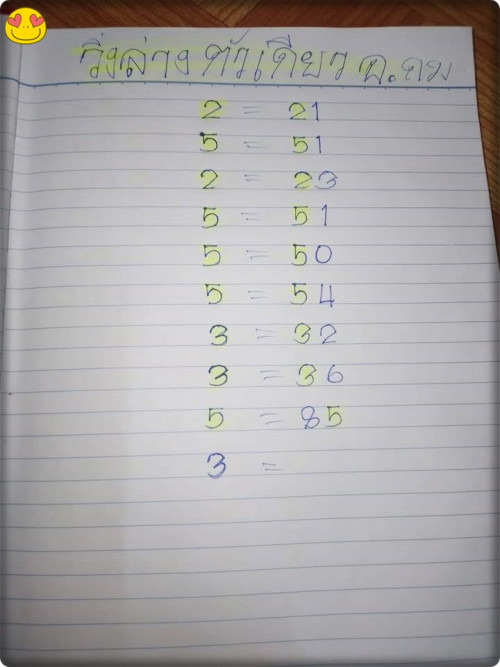 วิ่งล่าง ตัวเดียว อ.ถม
2 = 21
5 = 51
2 = 23
5 = 51
5 = 50
5 = 54
3 = 32
3 = 36
5 = 85
3 =